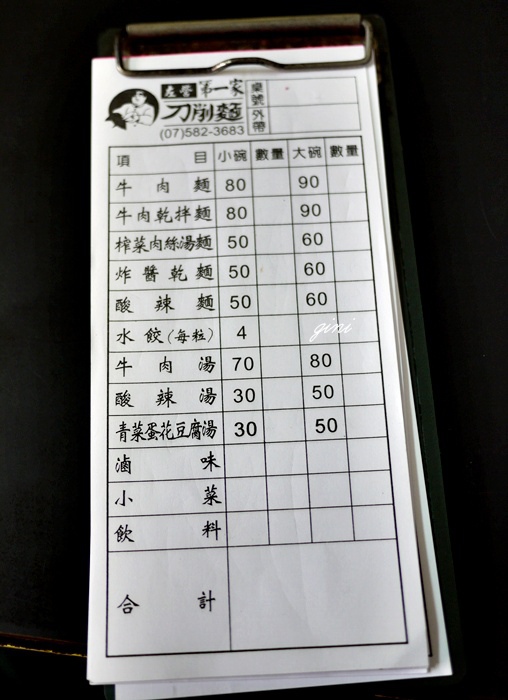 左營第一家
刀削麵
(07)582-3683
桌號
外帶
項目 小碗 數量 大碗 數量
牛肉麵 80 90
牛肉乾拌麵 80 90
榨菜肉絲湯麵 50 60
炸醬乾麵 50 60
酸辣麵 50 60
水餃(每粒) 4
gini
牛肉湯 70 80
酸辣湯 30 50
青菜蛋花豆腐湯 30 50
滷味
小菜
飲料
合計